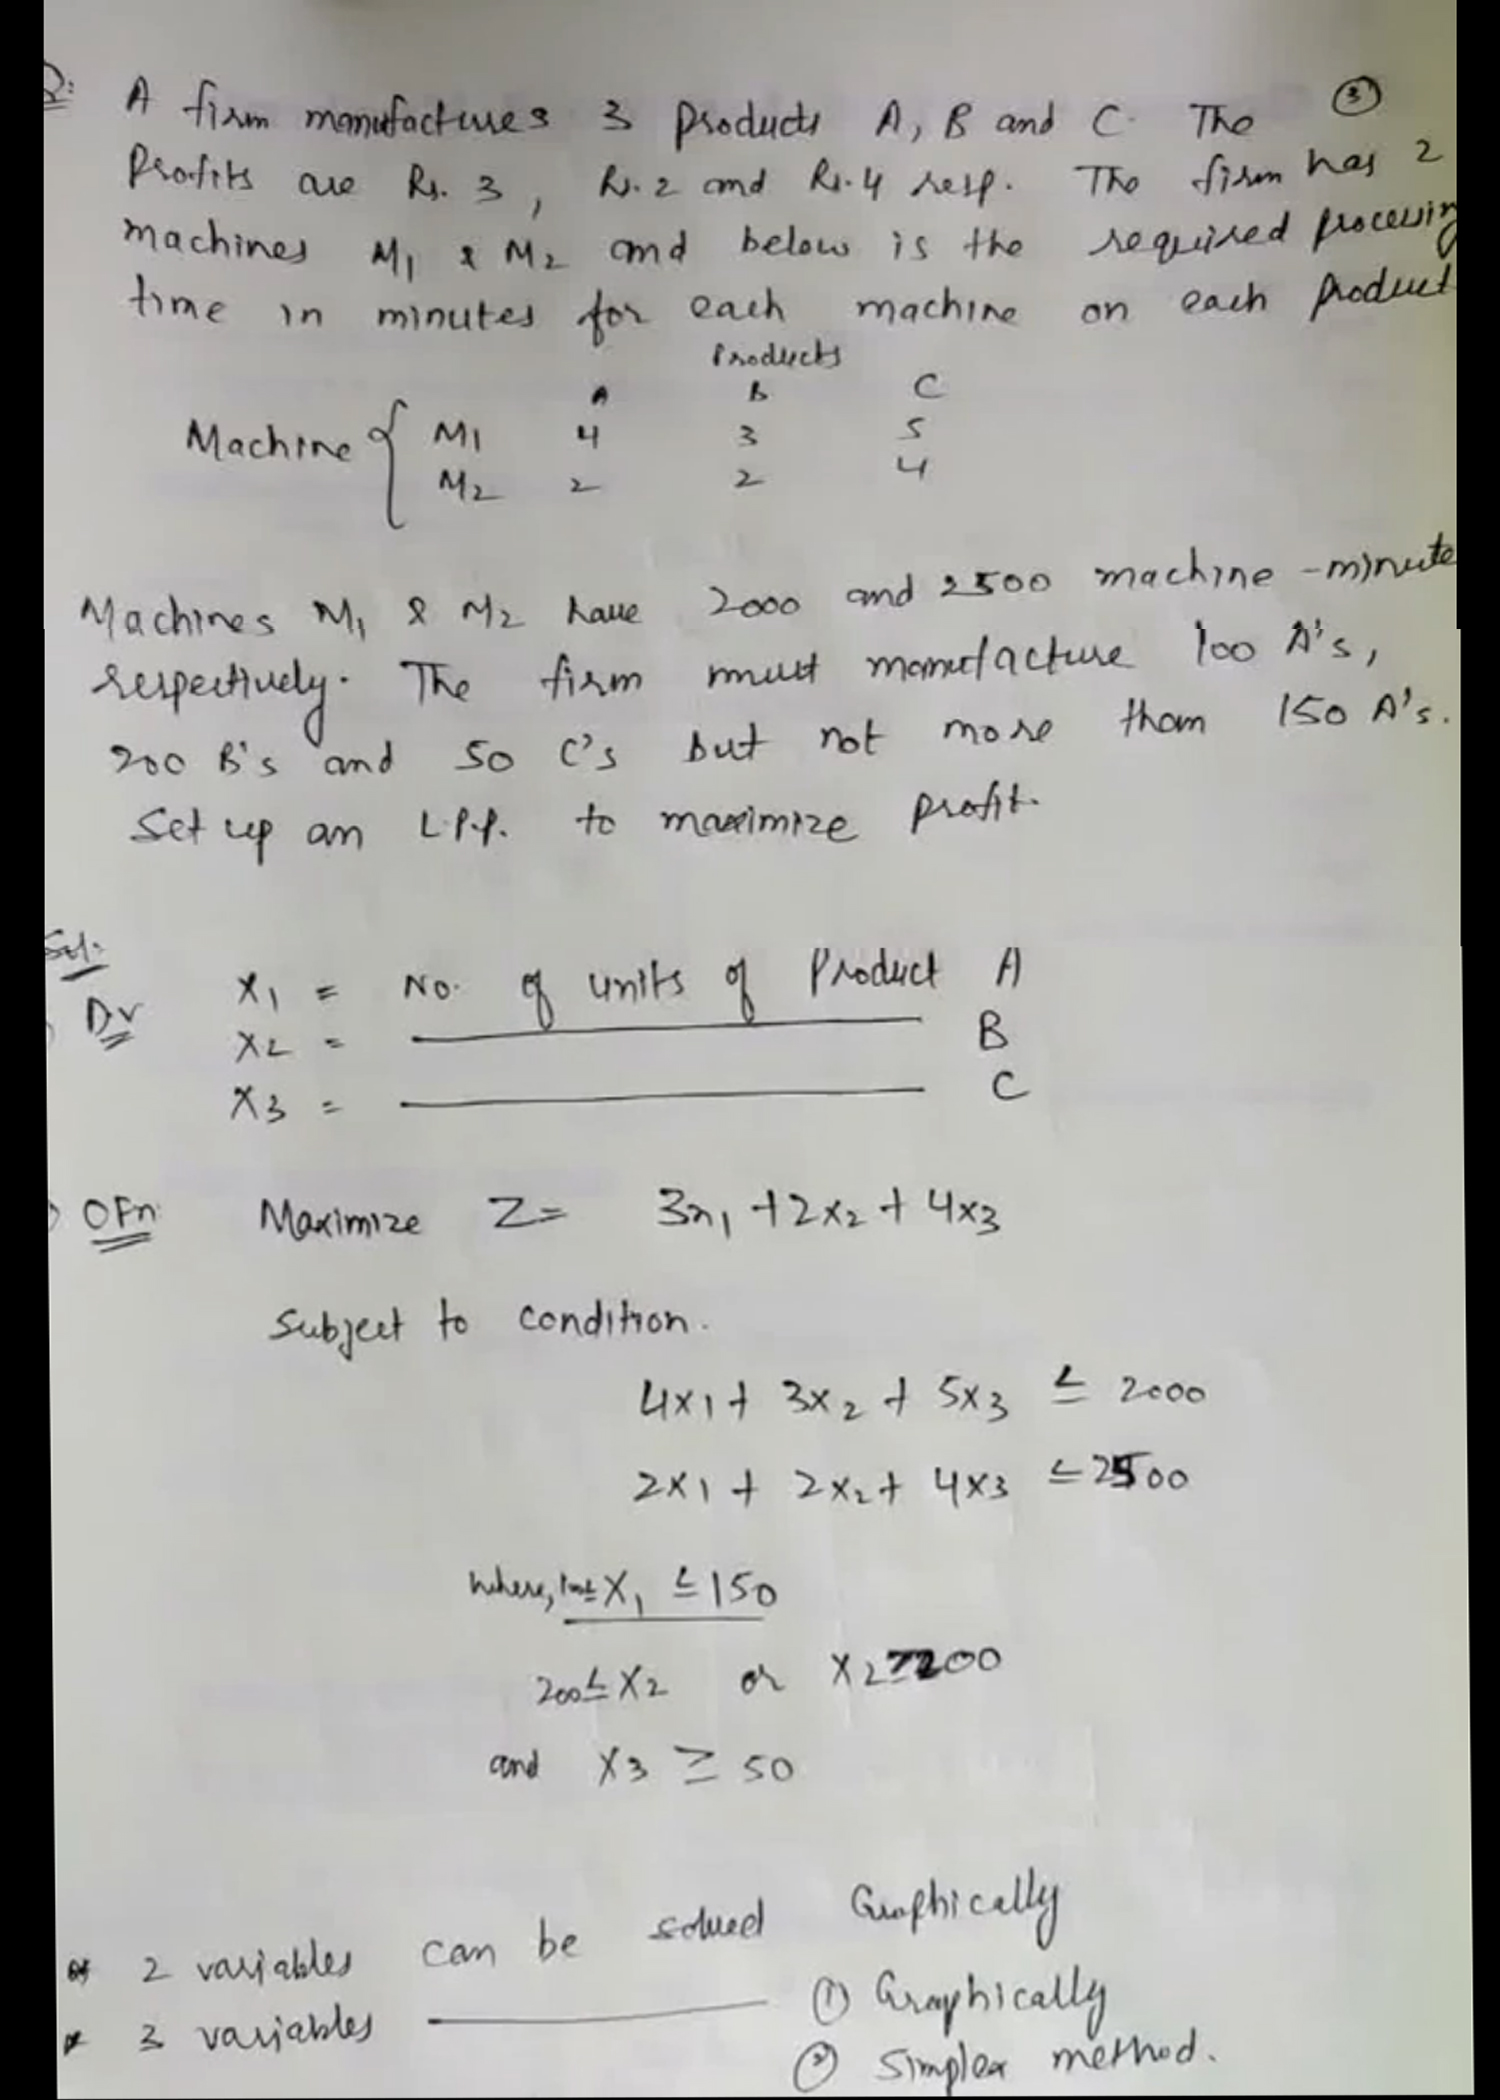 Q: A firm manufactures 3 Products A, B and C. The ③
Profits are Rs. 3, Rs. 2 and Rs. 4 resp. The firm has 2
machines M1 & M2 and below is the required processing
time in minutes for each machine on each product
Products
A B C
Machine { M1 4 3 5
M2 2 2 4
Machines M1 & M2 have 2000 and 2500 machine-minute
respectively. The firm must manufacture 100 A's,
200 B's and 50 C's but not more than 150 A's.
Set up an L.P.P. to maximize profit.
Sol:
DV X1 = No. of units of Product A
X2 = ———— B
X3 = ———— C
OFn: Maximize Z = 3x1 + 2x2 + 4x3
Subject to condition.
4x1 + 3x2 + 5x3 ≤ 2000
2x1 + 2x2 + 4x3 ≤ 2500
where, 100 ≤ X1 ≤ 150
200 ≤ X2 or X2 ≥ 200
and X3 ≥ 50
* 2 variables can be solved Graphically
* 3 variables ———— ① Graphically
② Simplex method.